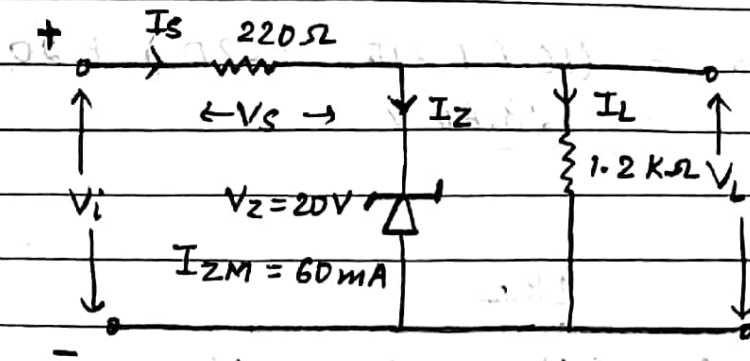 + Is 220Ω
←Vs→ Iz IL
1.2 KΩ VL
Vi Vz=20V
IZM = 60mA
-